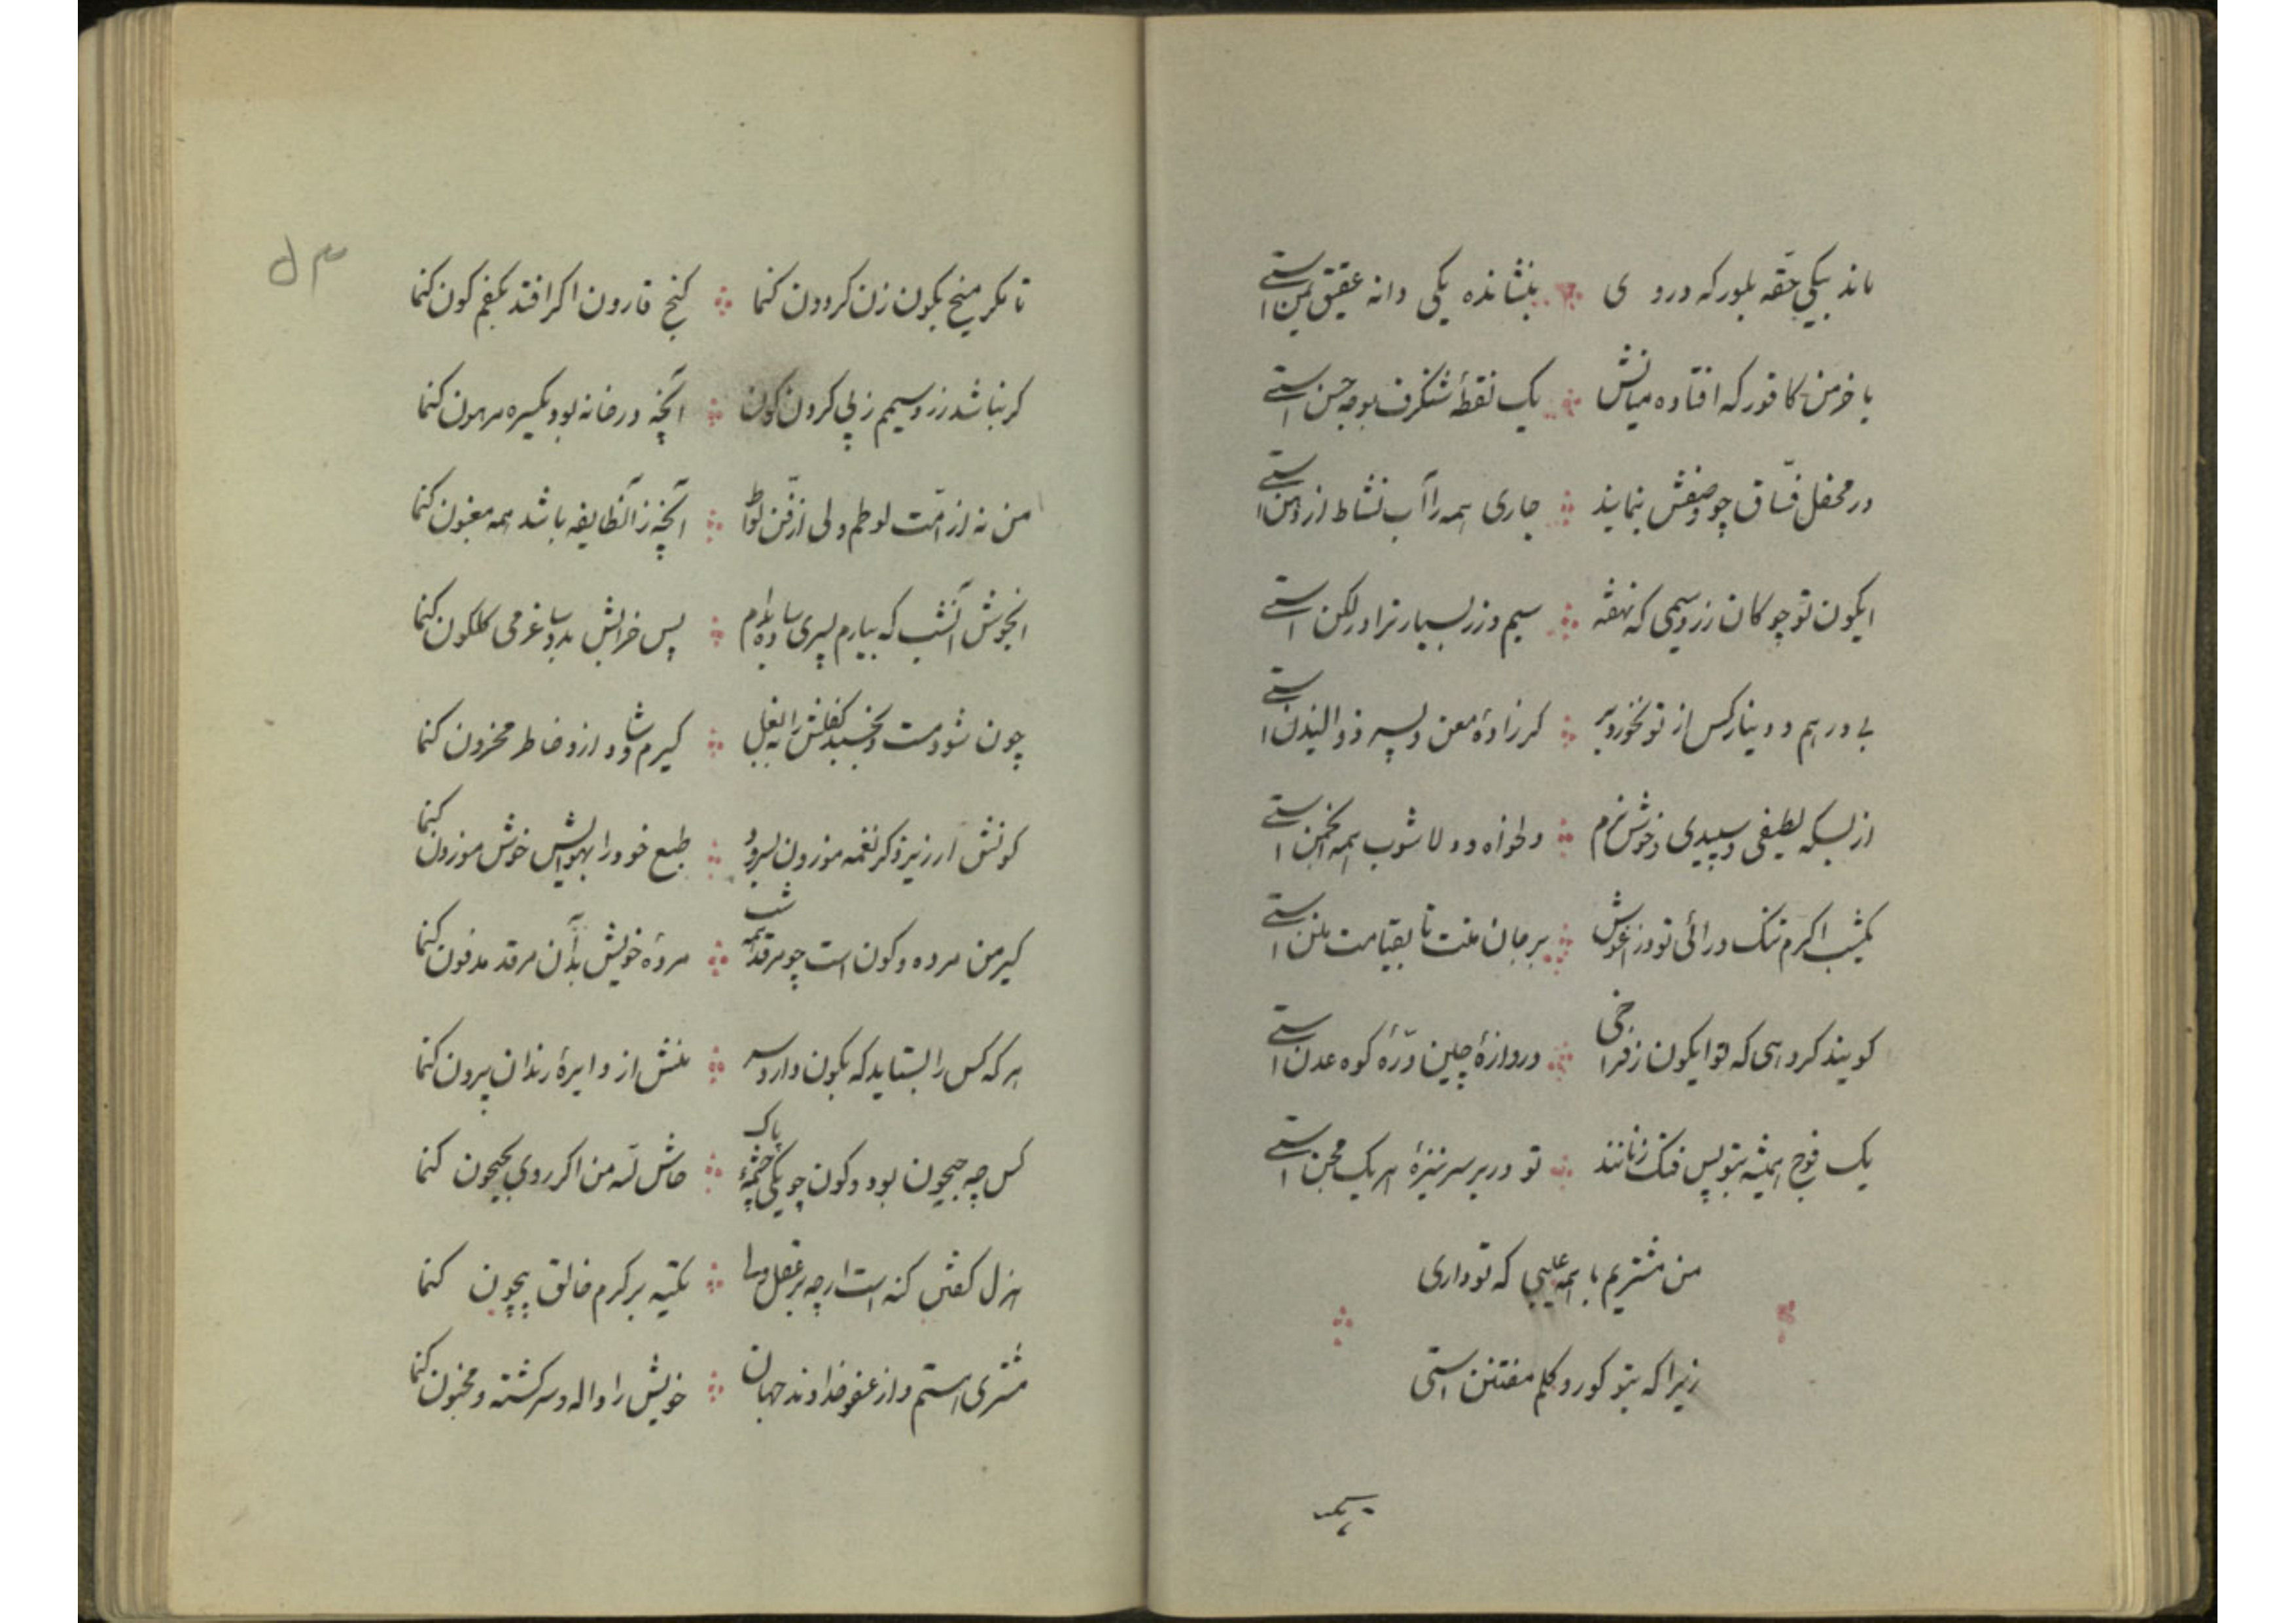 ماند بیکی حقّه بلور که در وی بنشانده یکی دانه عقیق یمن استی
یا خرمن کافور که افتاده میانش یک نقطهٔ شنگرف بوجه حسن استی
در محفل فسّاق چو وصفش بنمایند جاری همه را آب نشاط از دهن استی
ایکون تو چو کان زر و سیمی که نهفته سیم و زر بسیار ترا در لکن استی
بی درهم و دینار کس از تو نخورد بر کر زادهٔ معن و پسر ذوالیزن استی
از بسکه لطیفی و سپیدی و خوش و نرم دلخواه و دلاشوب همه انجمن استی
یکشب اکرم تنک درائی تو در اغوش بر جان منت تا بقیامت منن استی
کویند کروهی که تو ایکون ز فراخی دروازهٔ چین و درّهٔ کوه عدن استی
یک فوج همیشه بتو پس فنک زنانند تو در بر سر نیزهٔ هر یک مجن استی
من مشتریم با همه عیبی که تو داری
زیرا که بتو کور و کلم مفتتن استی
یک
۵۳
تا مکر میخ بکون زن کردون کنما کنج قارون اکر افتد بکفم کون کنما
کر نباشد زر و سیمم ز پی کردن کون آنچه در خانه بود یکسره مرهون کنما
من نه از امّت لوطم ولی از فنّ لواط آنچه زآنطایفه باشد همه مغبون کنما
ایخوش آنشب که بیارم پسری ساده بدام پس خرابش بدو ساغر می کلکون کنما
چون شود مست و بخسبد کفلش را به بغل کیرم و شاد ازو خاطر محزون کنما
کونش ار زیر ذکر نغمه موزون بسرود طبع خود را بهوایش خوش و موزون کنما
کیر من مرده و کون است چو مرقد همه شب مردهٔ خویش بدآن مرقد مدفون کنما
هر که کس را بستاید که بکون دارد سر منش از دایرهٔ رندان بیرون کنما
کس چه جیحون بود و کون چو یکی چشمهٔ پاک حاش لله من اکر روی بجیحون کنما
هزل کفتن کنه است ار چه بر عقل ولی تکیه بر کرم خالق بیچون کنما
مشتری استم و از عفو خداوند جهان خویش را واله و سرکشته و مجنون کنما